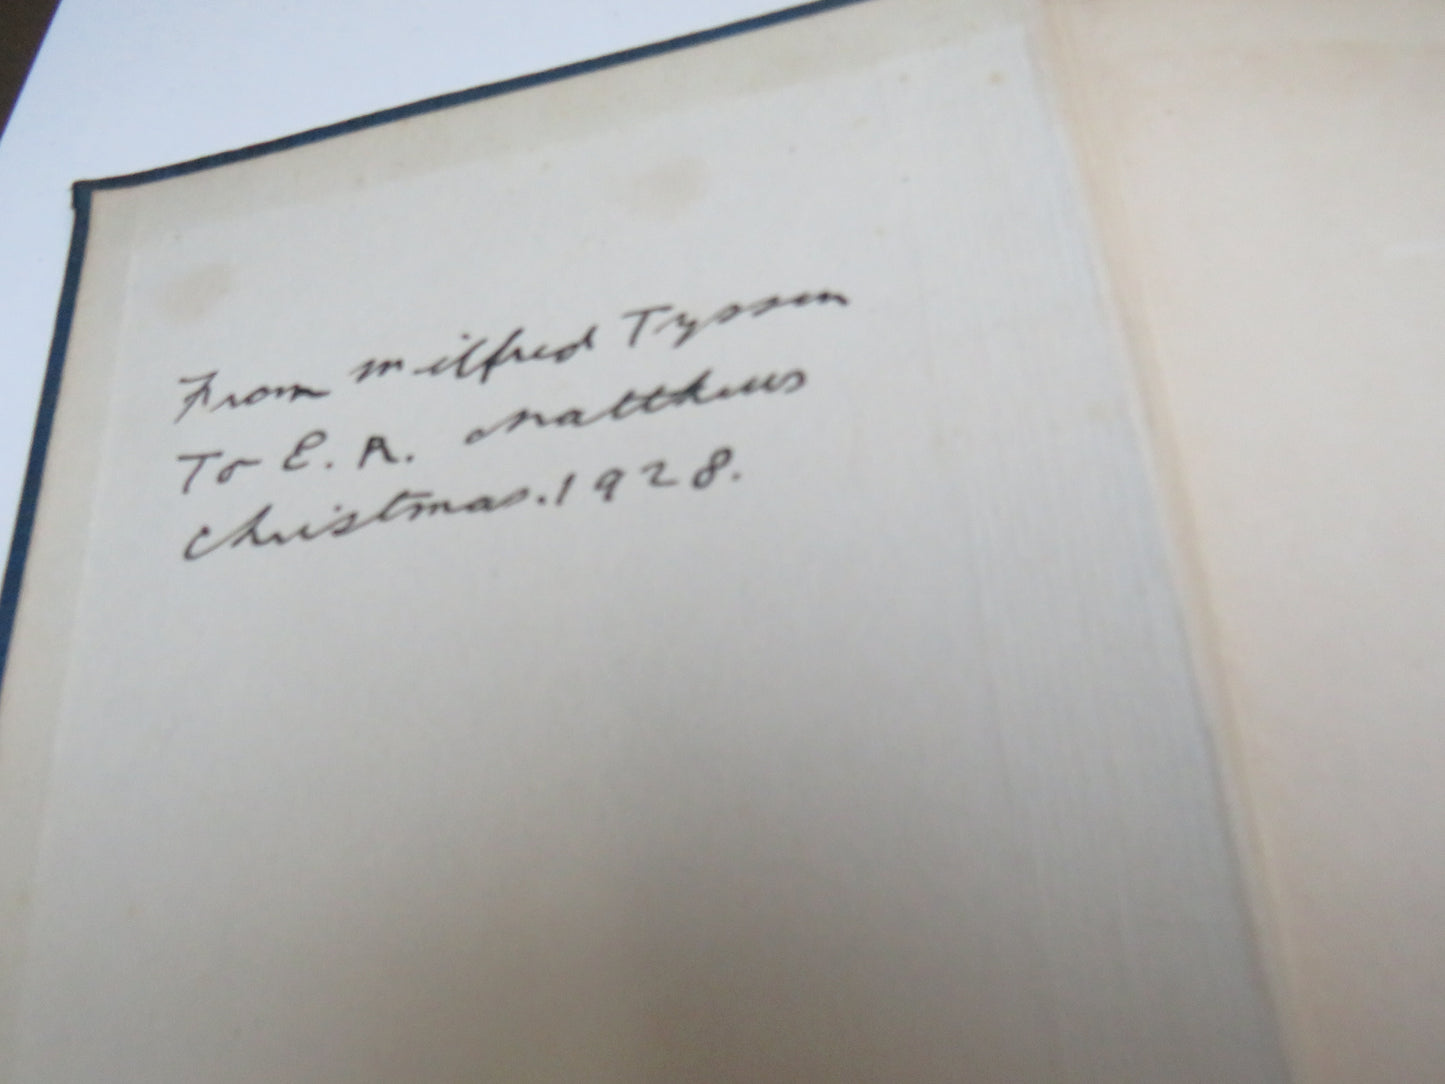 From Milfred Tyssen
To E. R. Matthews
Christmas. 1928.